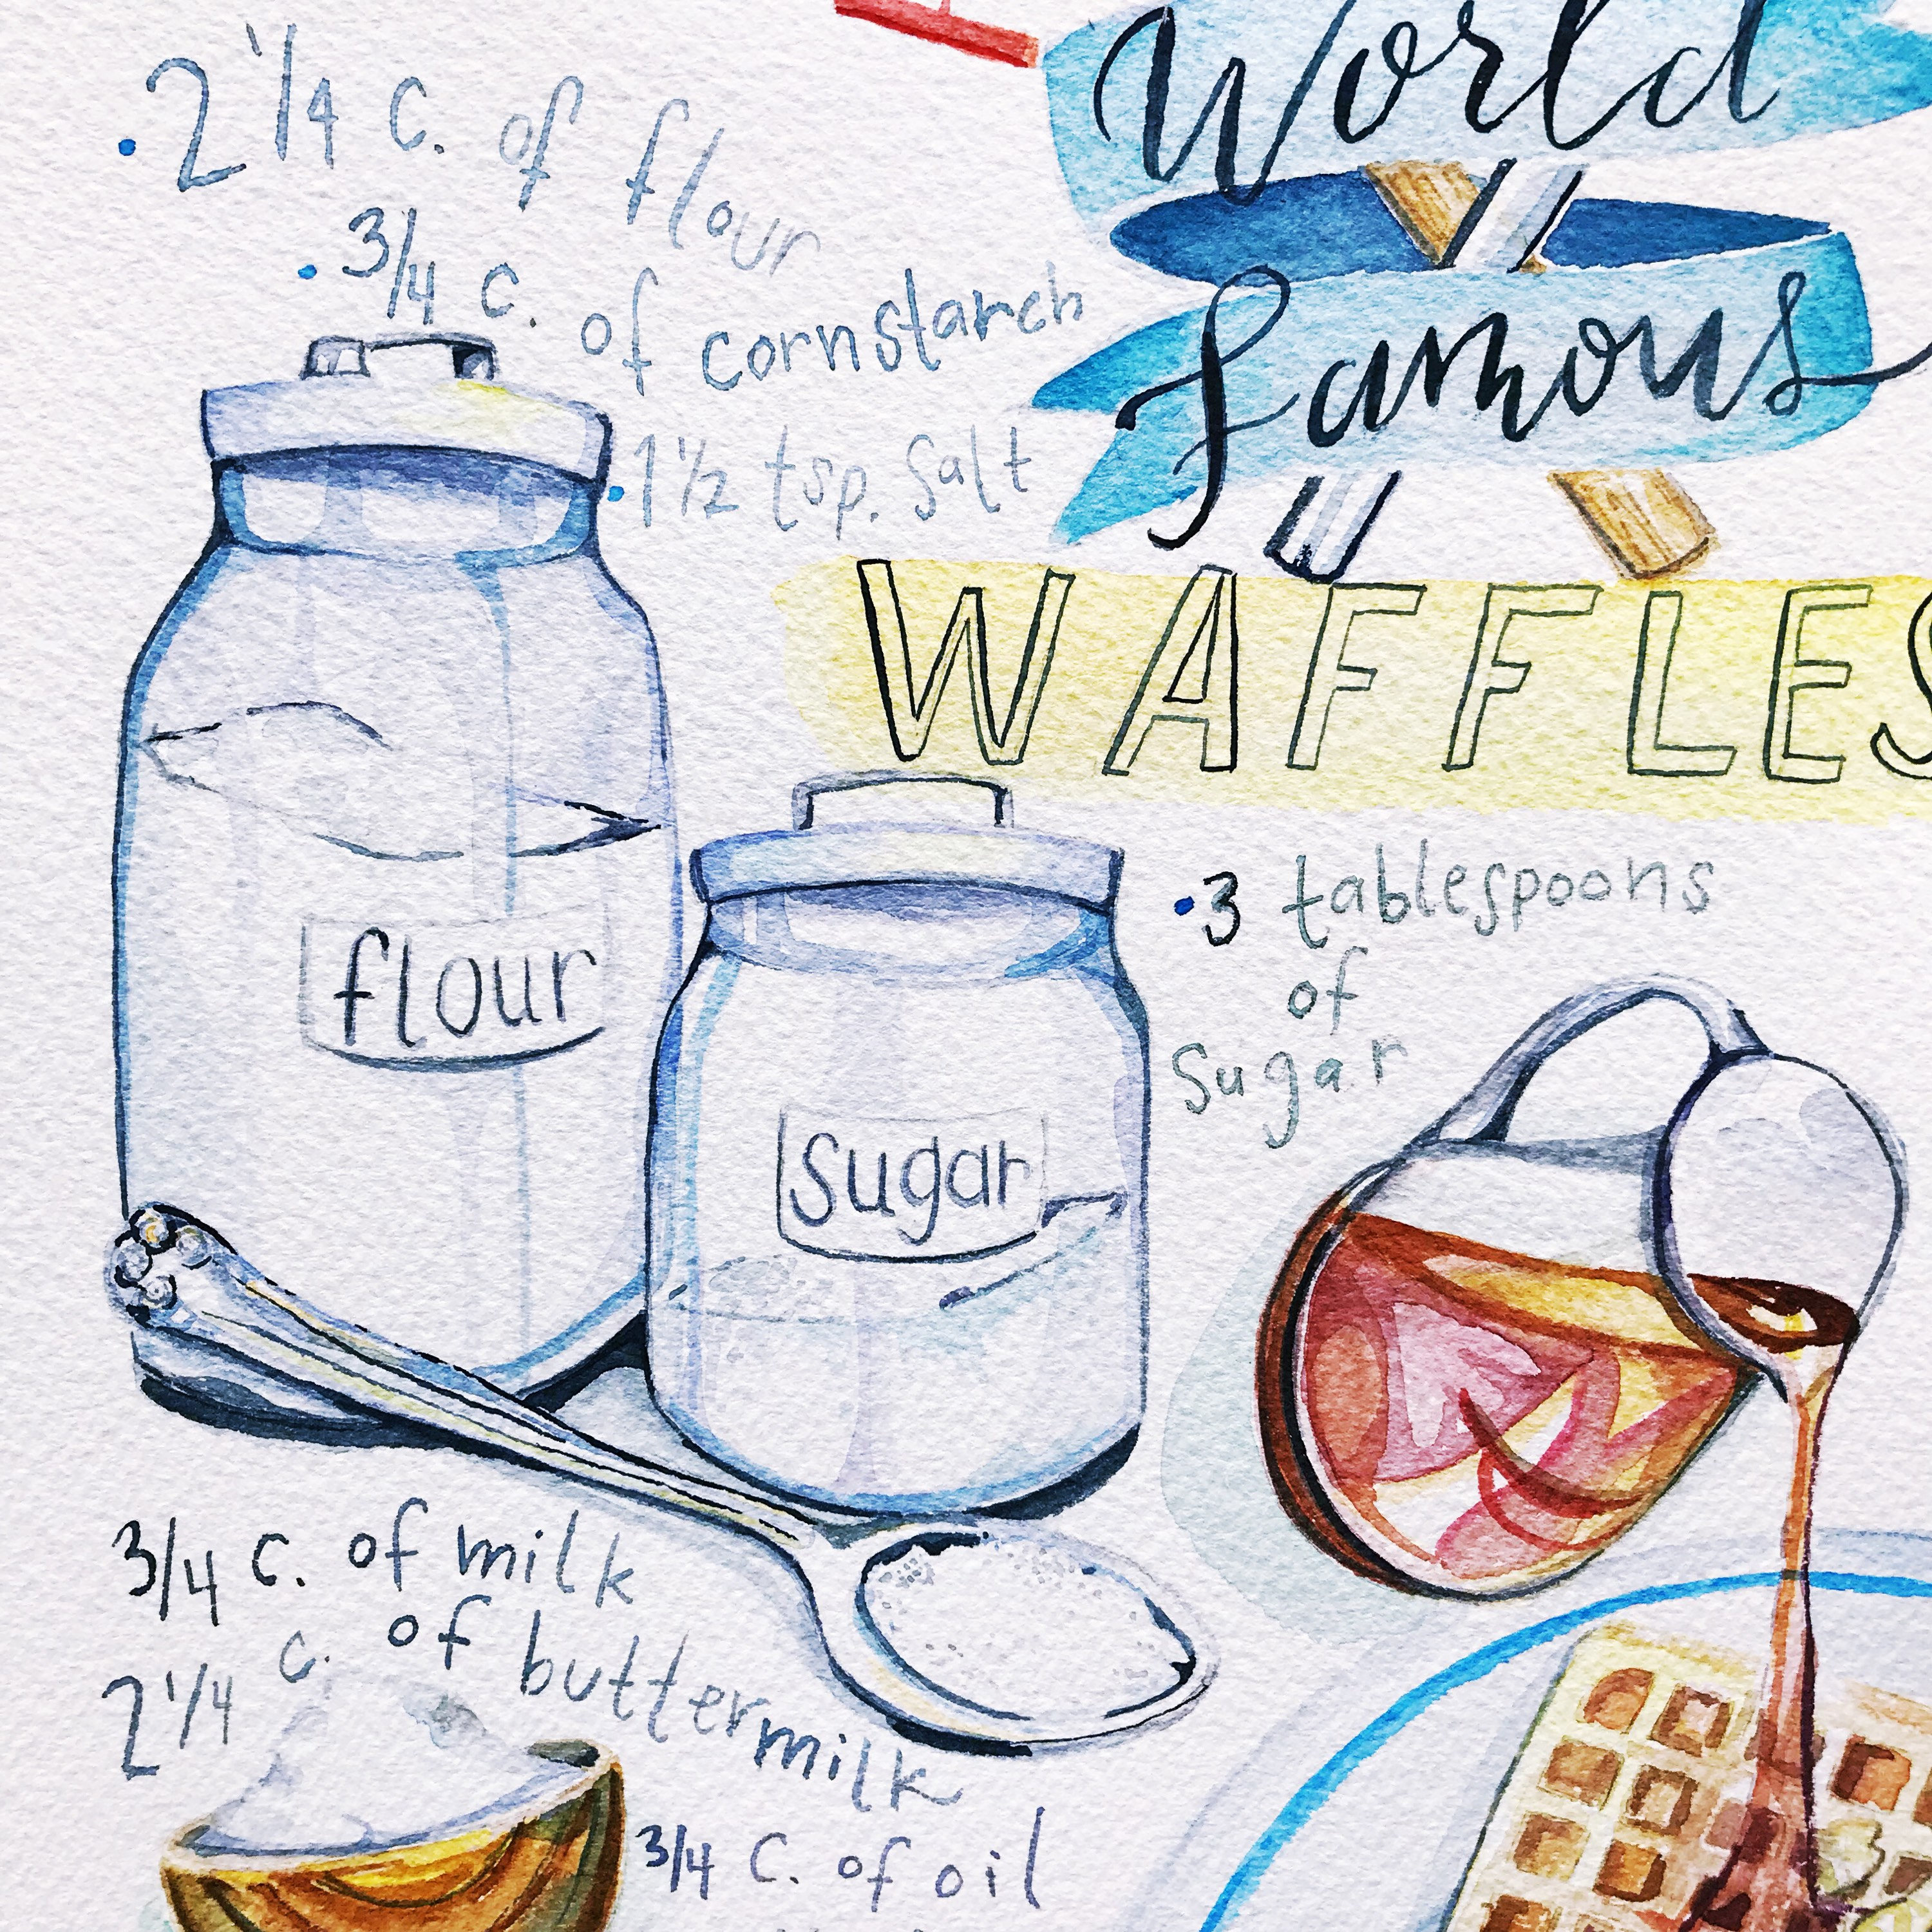 World
famous
WAFFLES
• 2 1/4 c. of flour
• 3/4 c. of cornstarch
• 1 1/2 tsp. salt
flour
sugar
• 3 tablespoons
of
sugar
3/4 c. of milk
2 1/4 c. of buttermilk
3/4 c. of oil